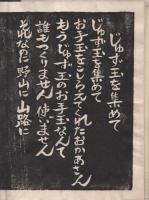 じゅず玉を集めて
じゅず玉を集めて
お手玉をこしらえてくれたおかあさん
もうじゅず玉のお手玉なんて
誰もつくりません 使いません
それなのに 野山に 山路に